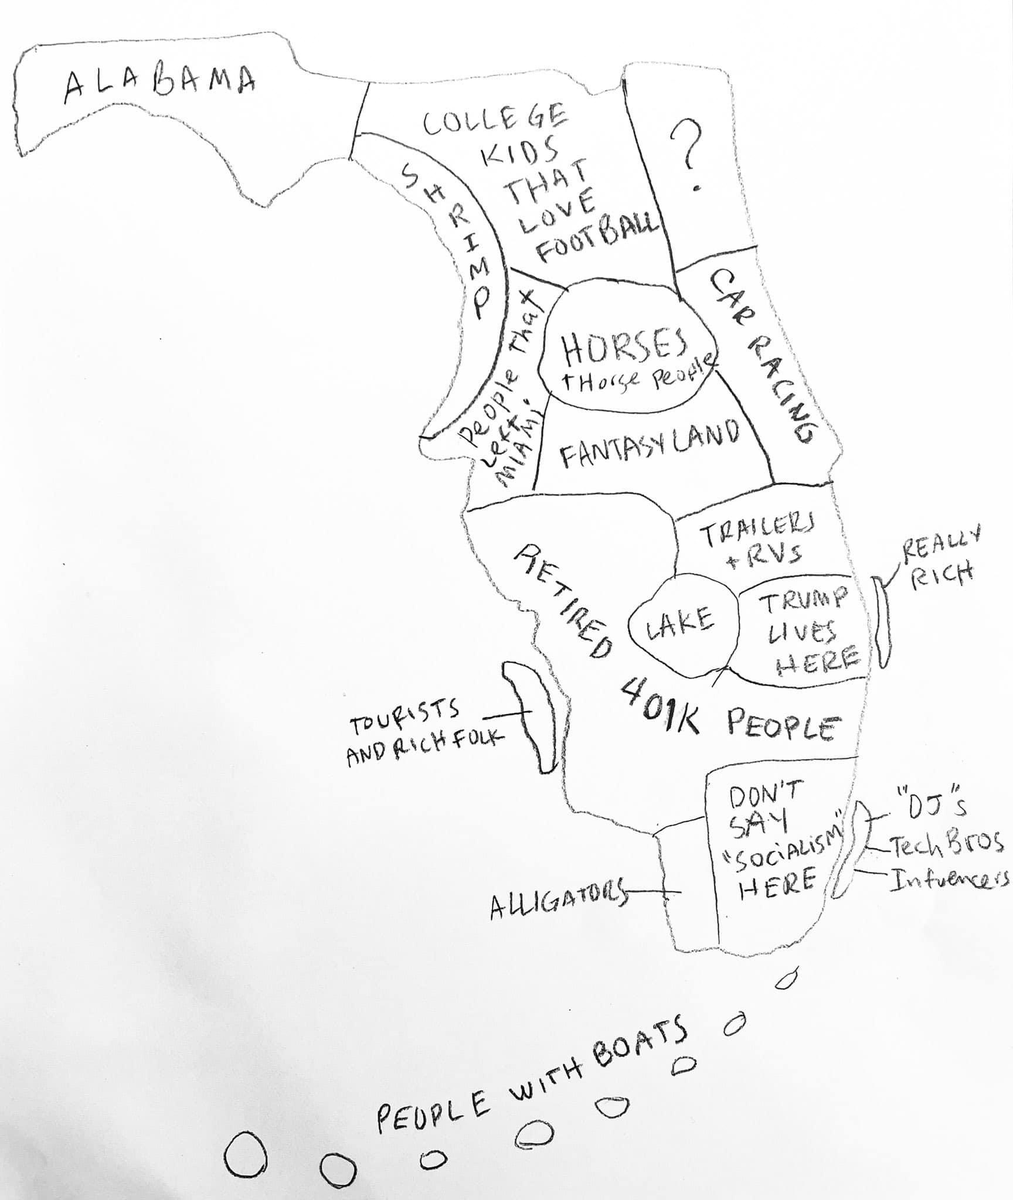 ALABAMA
COLLEGE
KIDS
THAT
LOVE
FOOTBALL
?
SHRIMP
CAR RACING
People That
Left
MIAMI
HORSES
+ Horse People
FANTASYLAND
TRAILERS
+ RVs
REALLY
RICH
RETIRED
LAKE
TRUMP
LIVES
HERE
401K PEOPLE
TOURISTS
AND RICH FOLK
DON'T
SAY
"SOCIALISM"
HERE
"DJ"s
Tech Bros
Infuencers
ALLIGATORS
PEOPLE WITH BOATS